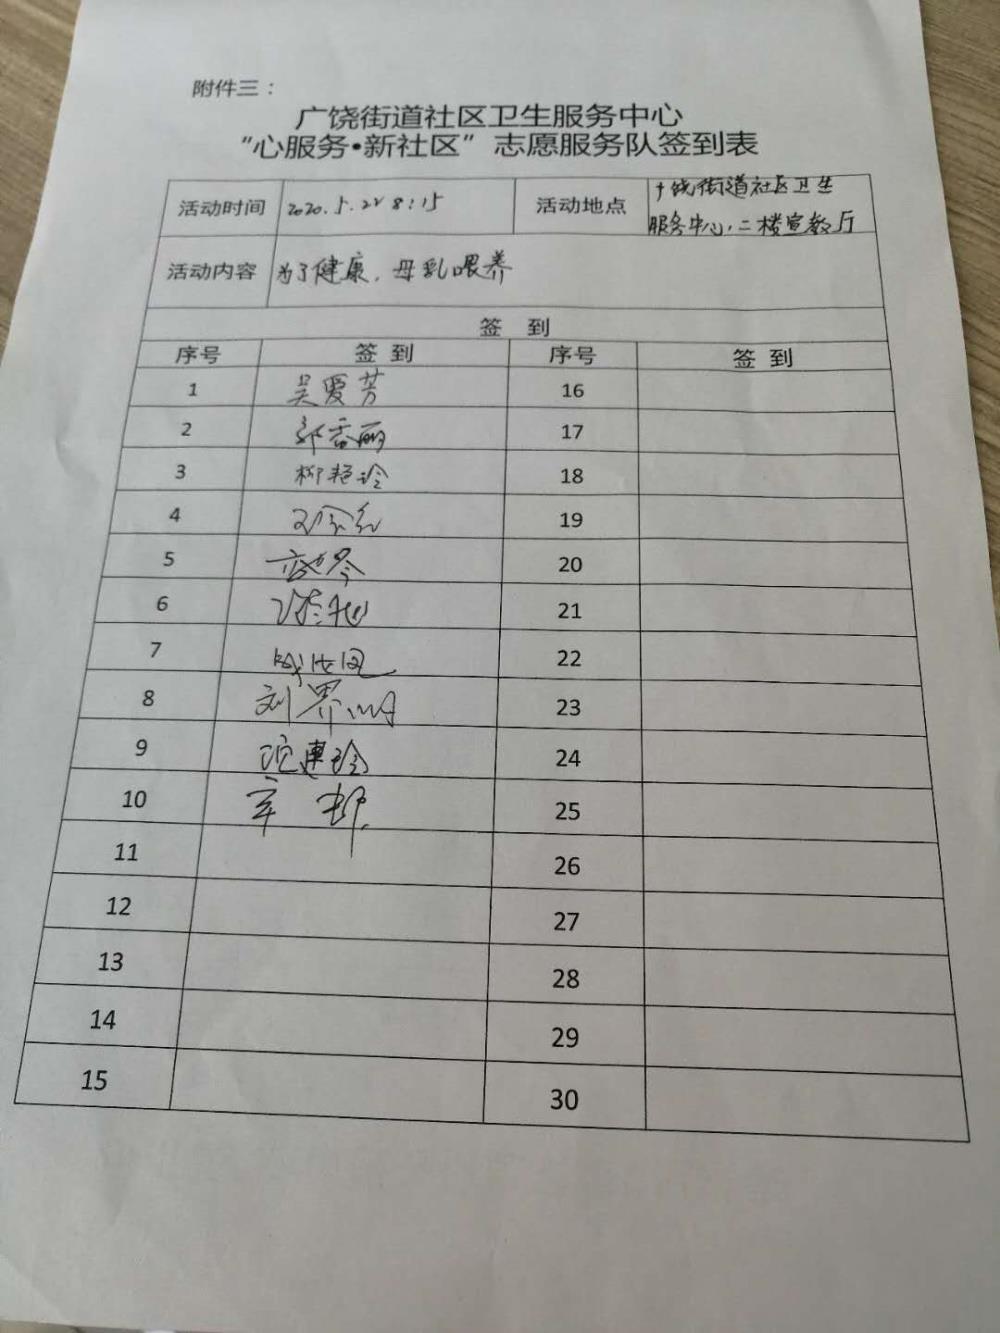 附件三：
广饶街道社区卫生服务中心
“心服务•新社区”志愿服务队签到表
活动时间 2020.5.22 8:15 活动地点 广饶街道社区卫生
服务中心，二楼宣教厅
活动内容 为了健康，母乳喂养
签 到
序号 签 到 序号 签 到
1 吴爱芳 16
2 郭香丽 17
3 柳艳玲 18
4 19
5 20
6 21
7 22
8 刘界明 23
9 连玲 24
10 25
11 26
12 27
13 28
14 29
15 30